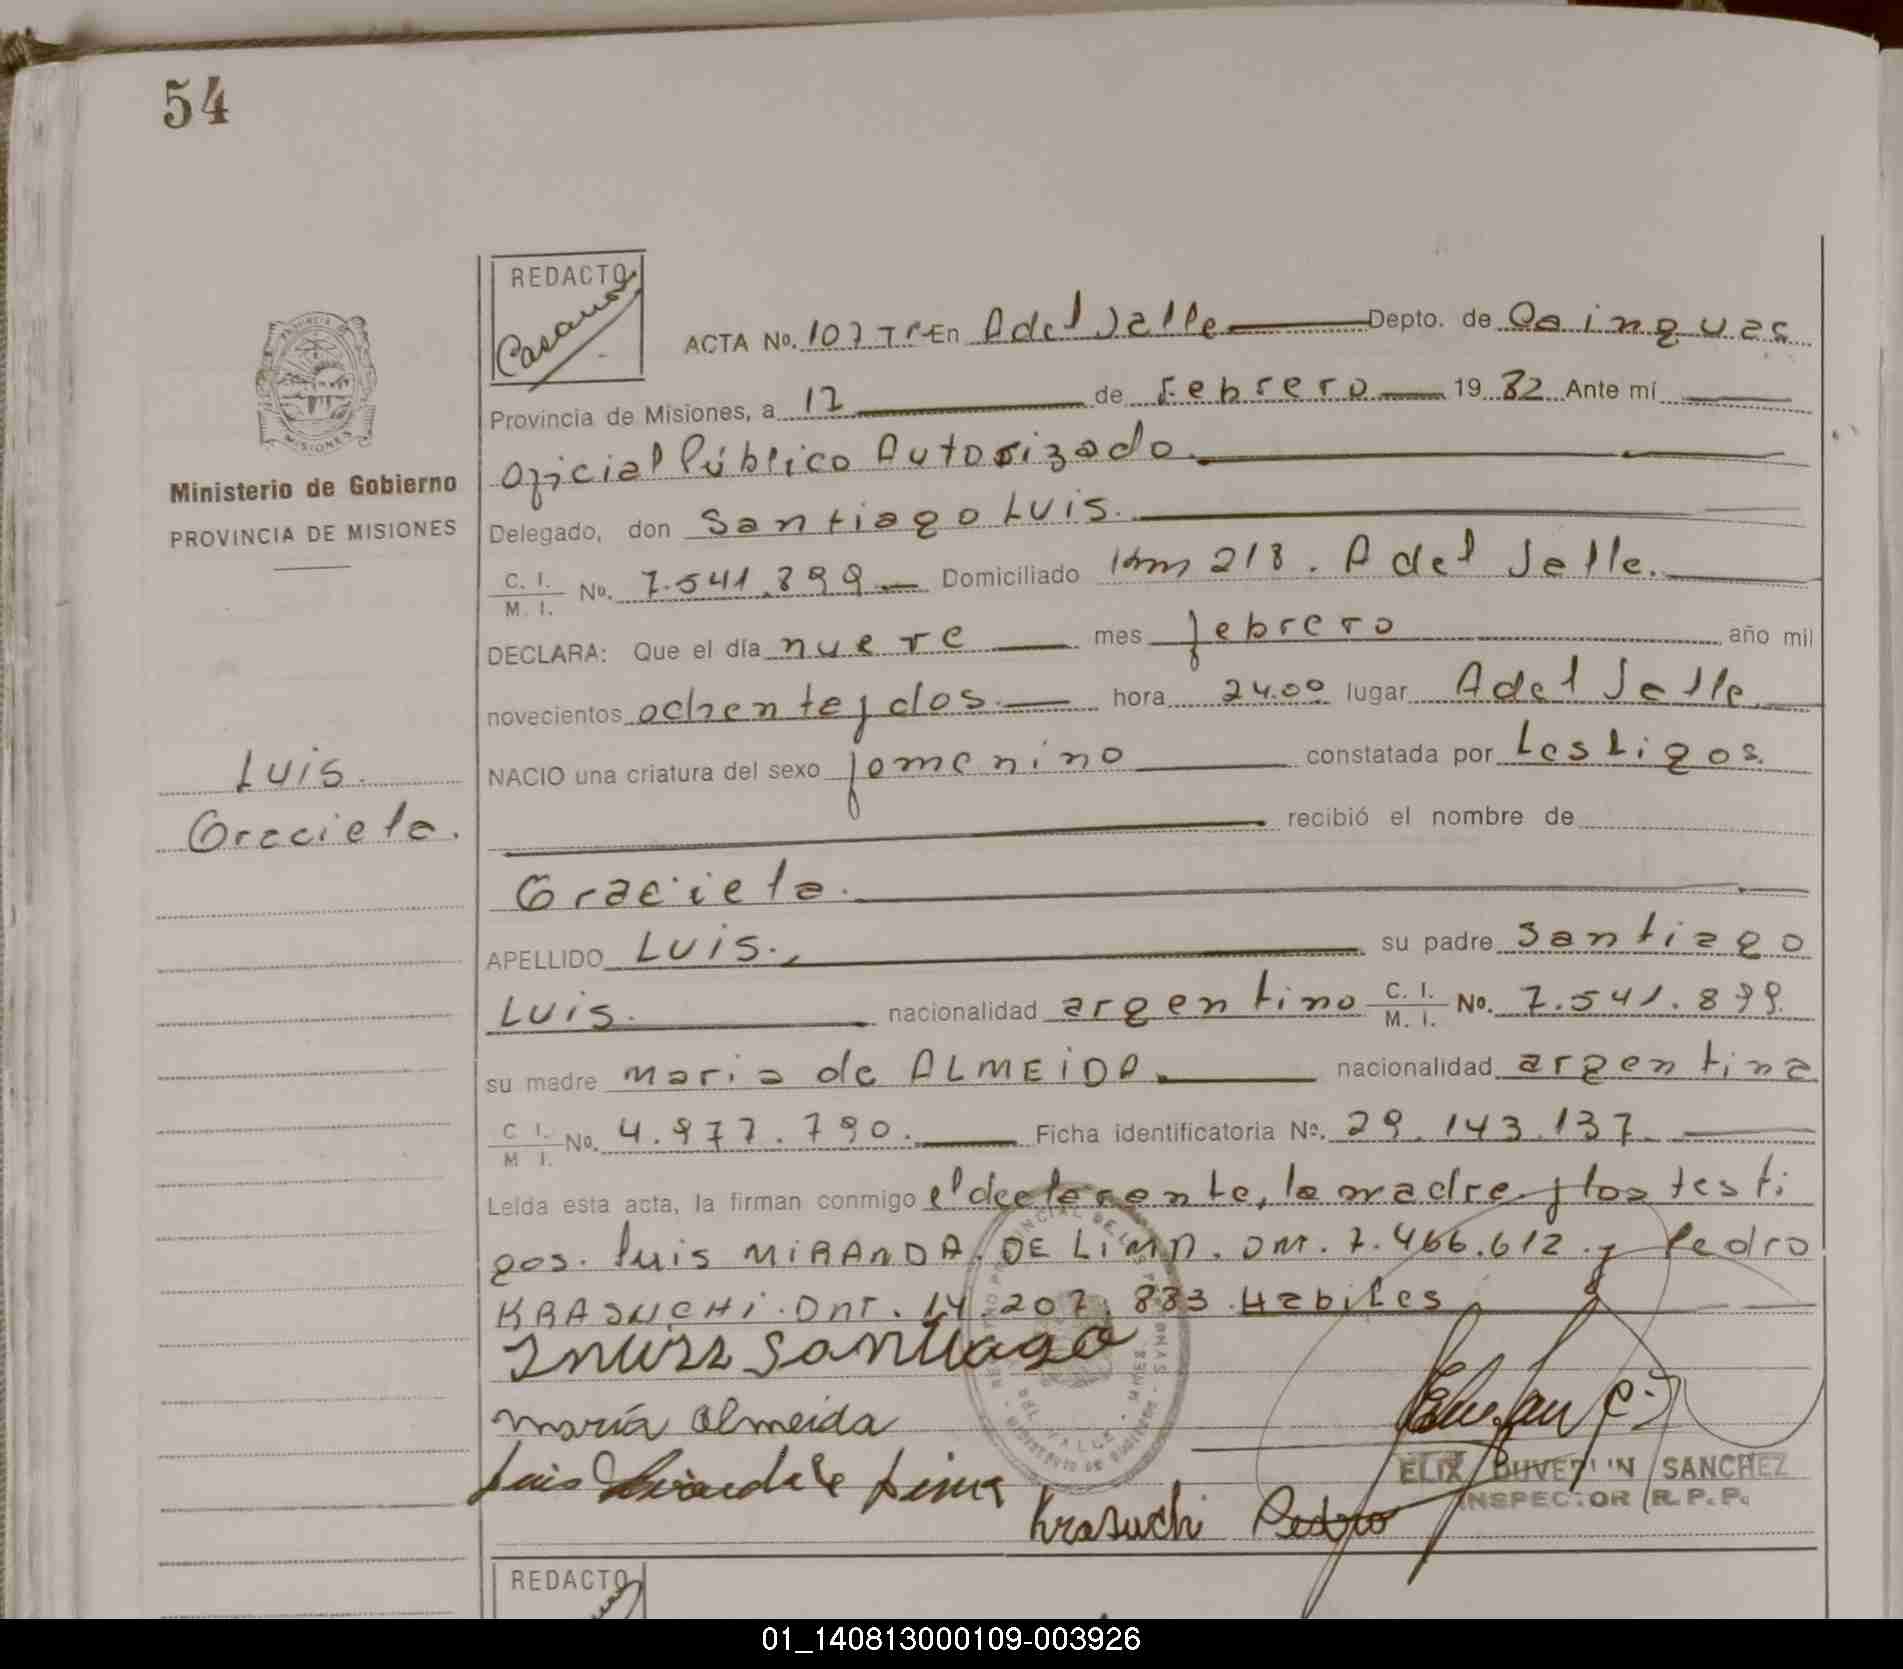 54
REDACTO
Casano
ACTA No. 107 Tº En A del Valle Depto. de Cainguas
Provincia de Misiones, a 17 de Febrero 19 82 Ante mí
Oficial Público Autorizado
Ministerio de Gobierno
PROVINCIA DE MISIONES
Delegado, don Santiago LUIS.
C. I.
M. I. No. 7.541.899 Domiciliado Km 218. A del Valle.
DECLARA: Que el día nueve mes febrero año mil
novecientos ochenta y dos hora 24.00 lugar A del Valle
Luis.
Graciela.
NACIO una criatura del sexo femenino constatada por testigos.
recibió el nombre de
Graciela.
APELLIDO LUIS. su padre Santiago
LUIS. nacionalidad argentino C. I.
M. I. No. 7.541.899.
su madre maria de ALMEIDA. nacionalidad argentina
C I.
M I. No. 4.977.790. Ficha identificatoria No. 29.143.137.
Leída esta acta, la firman conmigo el declarante, la madre y los testi
gos. Luis MIRANDA. DE LIMA. DNI. 7.466.612. y Pedro
KRASUCHI. DNI. 14.207.883. Habiles
Santiago
maría Almeida
Luis de Lima
Krasuchi Pedro
SANCHEZ
INSPECTOR R.P.P.
REDACTO
01_140813000109-003926